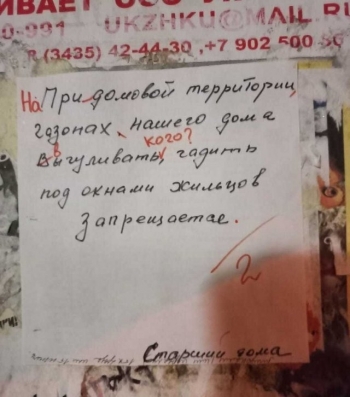 ИВАЕТ ООО
0-991 UKZHKU@MAIL.RU
(3435) 42-44-30, +7 902 500
На Придомовой территории,
газонах, нашего дома
кого?
выгуливать, гадить
под окнами жильцов
Запрещаетае.
2
Старший дома